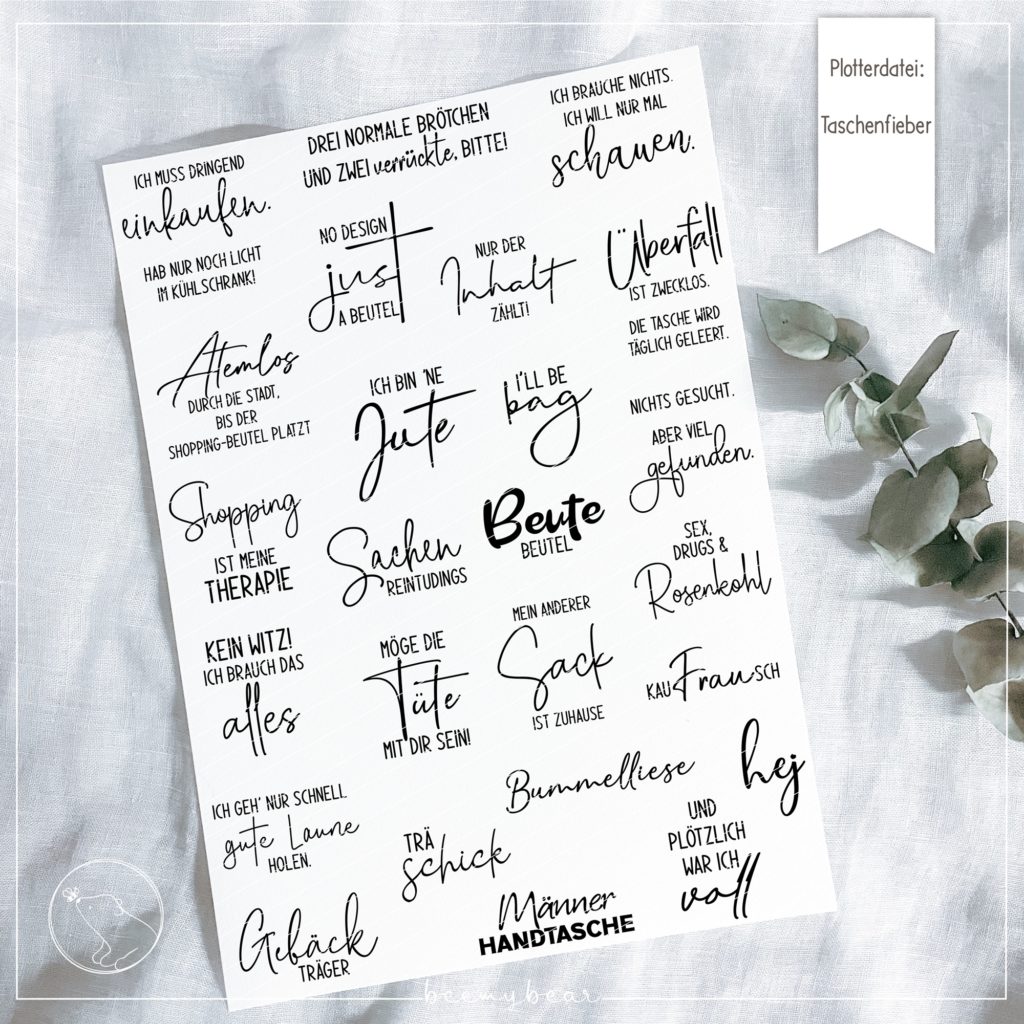 Plotterdatei:
Taschenfieber
ICH MUSS DRINGEND
einkaufen.
HAB NUR NOCH LICHT
IM KÜHLSCHRANK!
DREI NORMALE BRÖTCHEN
UND ZWEI verrückte, BITTE!
ICH BRAUCHE NICHTS.
ICH WILL NUR MAL
schauen.
NO DESIGN
just
A BEUTEL
NUR DER
Inhalt
ZÄHLT!
Überfall
IST ZWECKLOS.
DIE TASCHE WIRD
TÄGLICH GELEERT.
Atemlos
DURCH DIE STADT,
BIS DER
SHOPPING-BEUTEL PLATZT
ICH BIN 'NE
Jute
I'LL BE
bag
NICHTS GESUCHT.
ABER VIEL
gefunden.
Shopping
IST MEINE
THERAPIE
Sachen
REINTUDINGS
Beute
BEUTEL
SEX,
DRUGS &
Rosenkohl
KEIN WITZ!
ICH BRAUCH DAS
alles
MÖGE DIE
Tüte
MIT DIR SEIN!
MEIN ANDERER
Sack
IST ZUHAUSE
KAUFrauSCH
ICH GEH' NUR SCHNELL
gute Laune
HOLEN.
TRÄ
schick
Bummelliese
hej
UND
PLÖTZLICH
WAR ICH
voll
Gebäck
TRÄGER
Männer
HANDTASCHE
beemybear